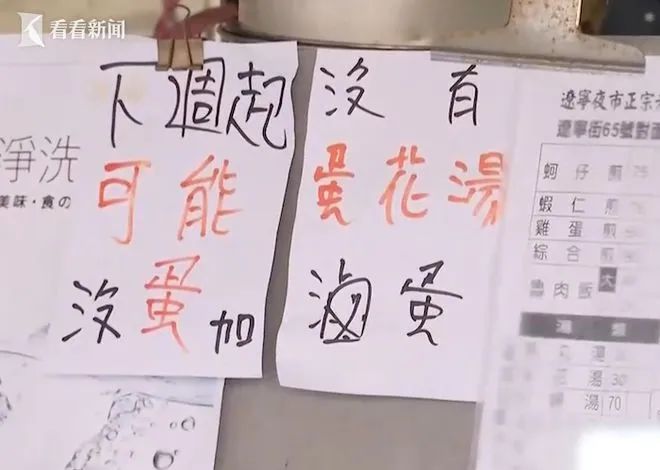 看看新闻
下週起
可能
沒蛋加
沒有
蛋花湯
滷蛋
淨洗
美味・食の
遼寧夜市正宗
遼寧街65號對面
蚵仔煎 75
蝦仁煎
雞蛋煎
綜合煎
魯肉飯 大
湯
湯 30
湯 70